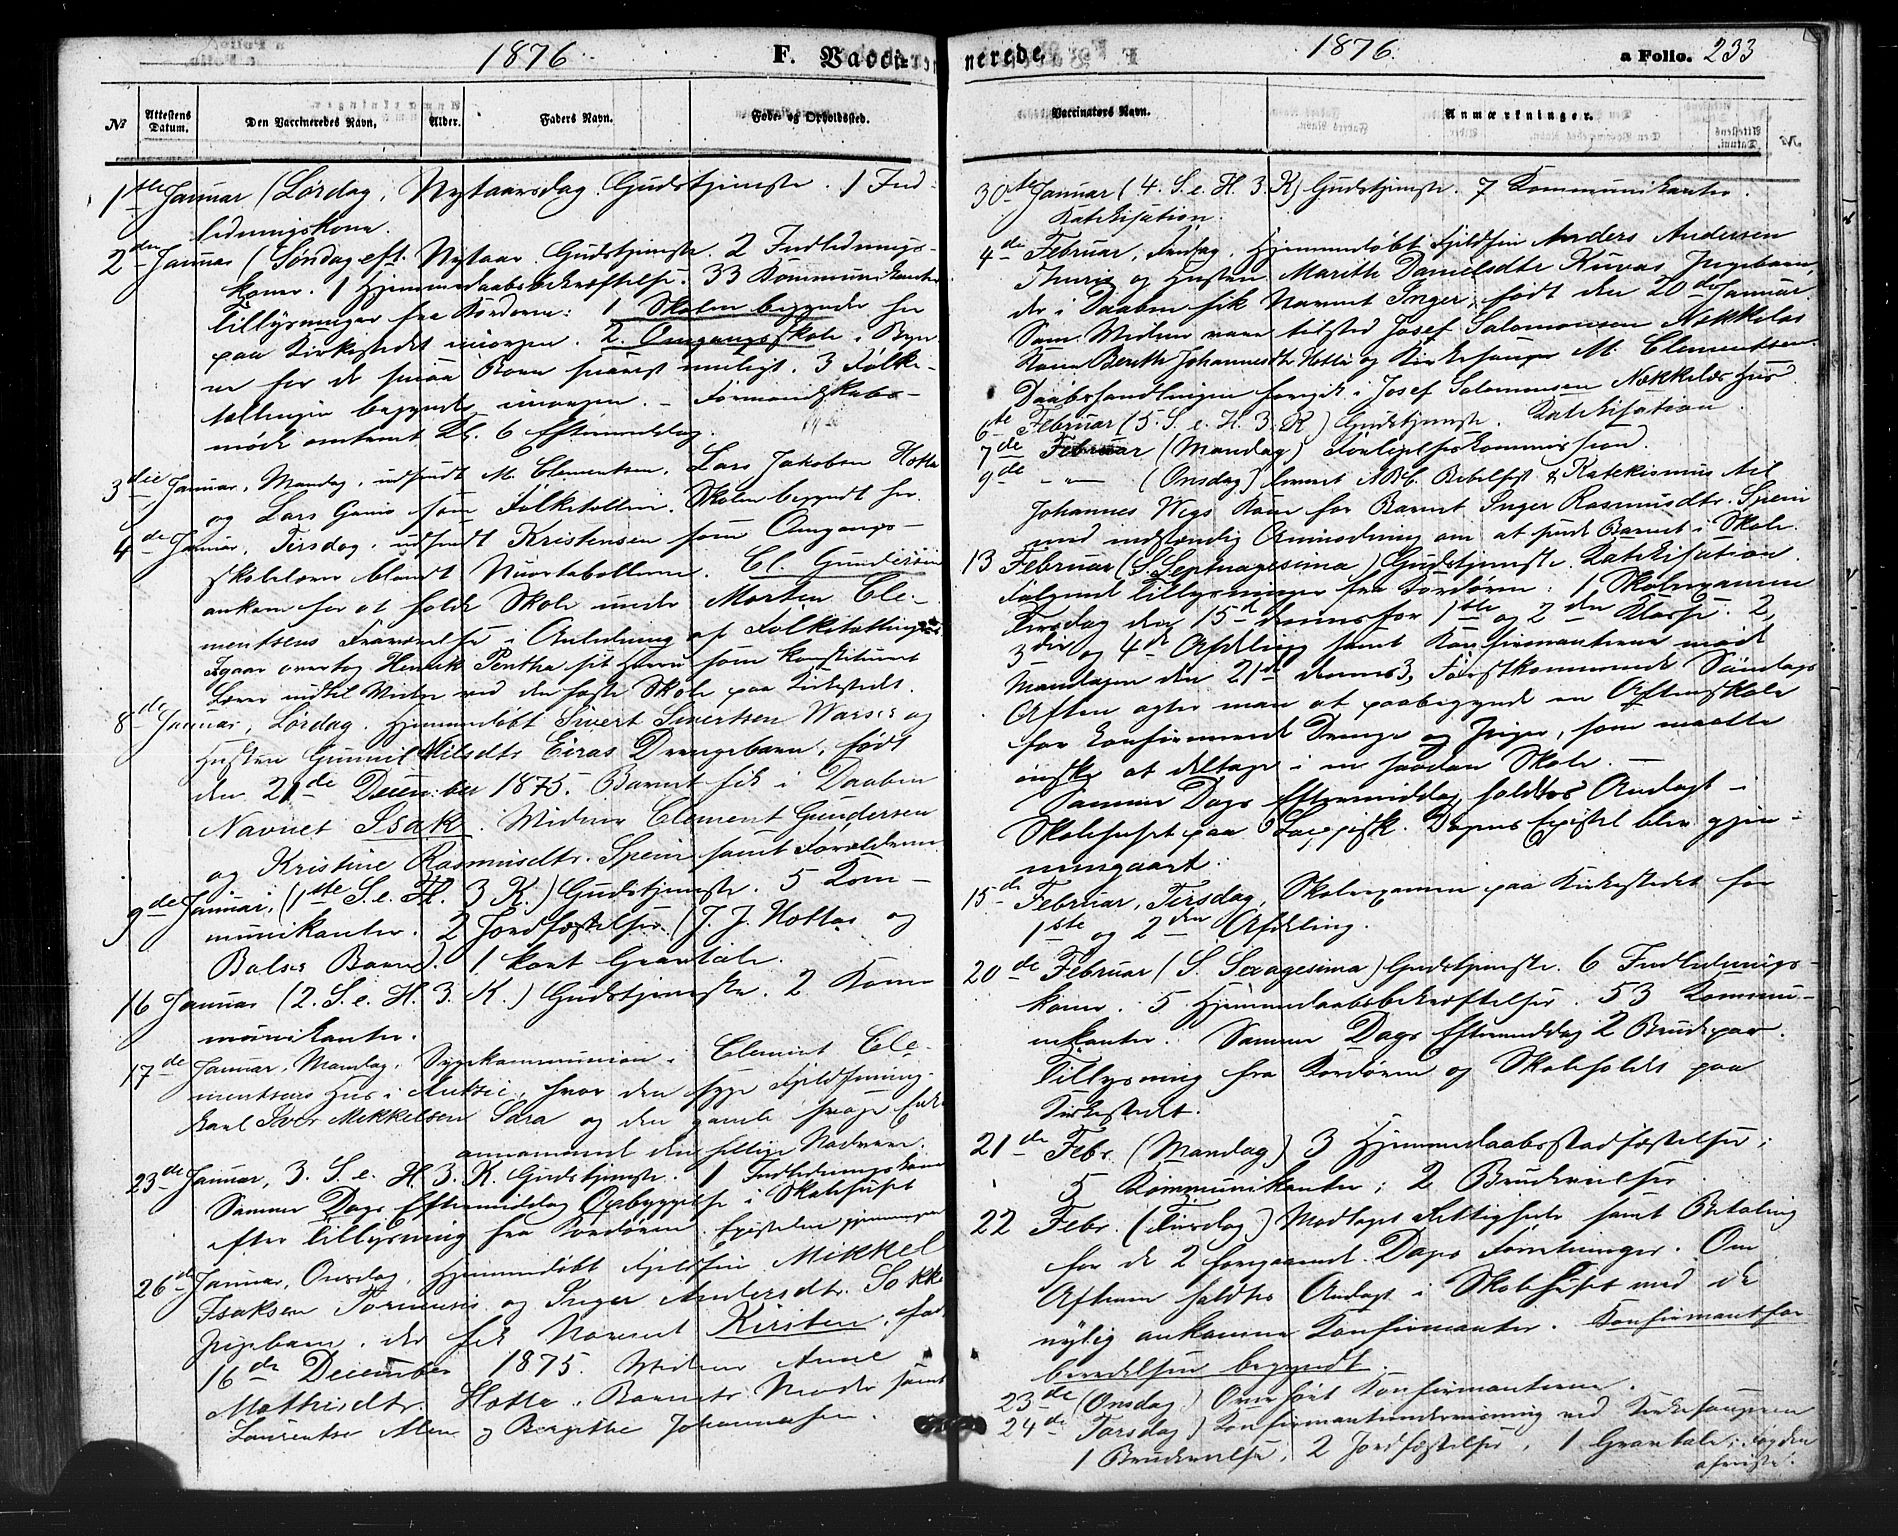 1876.
F. Vaccinerede.
1876.
a Folio. 233
№
Attestens Datum.
Den Vaccineredes Navn.
Alder.
Faders Navn.
Føde- og Opholdssted.
Vaccinators Navn.
Anmærkninger.
1ste Januar (Lørdag, Nytaarsdag. Gudstjeneste. 1 Ind-
ledningskone.
2den Januar (Søndag eft. Nytaar Gudstjeneste. 2 Indlednings-
koner. 1 Hjemmedaabsbekræftelse. 33 Kommunikanter
Tillysninger fra Kordøren: 1 Skolen begynder her
paa Kirkestedet imorgen. 2. Omgangsskole i Byer-
ne for de smaa Børn snarest muligt. 3 Folke-
tællingen begyndes imorgen. – Formandskabs-
møde omtrent Kl. 6 Eftermiddag.
3die Januar, Mandag, udsendt M. Clementsen, Lars Jakobsen Hotta
og Lars Gunis som Folketællere. Skolen begyndt her.
4de Januar, Tirsdag, udsendt Kristensen som Omgangs-
skolelærer blandt Nuortabøllerne. Cl. Gundersen
ankom for at holde Skole under Morten Cle-
mentsens Fraværelse i Anledning af Folketællingen
Igaar overtog Henrik Pentha sit Hverv som konstitueret
Lærer indtil Videre ved den faste Skole paa Kirkestedet.
8de Januar, Lørdag. Hjemmedøbt Sivert Sivertsen Varsis og
Hustru Gunnil Nilsdtr Eiras Drengebarn, født
den 21de December 1875. Barnet fik i Daaben
Navnet Isak. Vidner Clement Gundersen
og Kristine Rasmusdtr. Spein samt Forældrene.
9de Januar, (1ste S. e. H. 3 K.) Gudstjeneste. 5 Kom-
munikanter. 2 Jordfæstelser (J. J. Hottas og
Balses Barn). 1 kort Gravtale.
16 Januar (2. S. e. H. 3. K.) Gudstjeneste. 2 Kom-
munikanter.
17de Januar, Mandag, Sygekommunion i Clement Cle-
mentsens Hus i , hvor den syge Fjeldfinn
Karl Iver Mikkelsen Sara og den gamle svage Enke
annammed den hellige Nadvere.
23de Januar, 3. S. e. H. 3. K. Gudstjeneste. 1 Indledningskone
Samme Dags Eftermiddag Opbyggelse i Skolehuset
efter Tillysning fra Kordøren. Epistelen gjennemgaaet
26de Januar, Onsdag, Hjemmedøbt Fjeldfin Mikkel
Isaksen Tornensis og Inger Andersdtr. Sokki
Pigebarn, der fik Navnet Kirsten, født
16de December 1875. Vidner Anne
Mathisdtr. Hotta, Barnets Moder samt
Laurentse Alen og Bergithe Johannesen.
30te Januar (4. S. e. H. 3. K) Gudstjeneste. 7 Kommunikanter.
Katekisation.
4de Februar, Fredag. Hjemmedøbt Fjeldfin Anders Andersen
Thuri og Hustru Marith Danielsdtr Kuvas Pigebarn,
der i Daaben fik Navnet Inger, født den 20de Januar.
Som Vidner var tilsted Josef Salomonsen Nækkelas
Kone Berith Johannesdtr Hotta og Kirkesanger M. Clementsen.
Daabshandlingen foregik i Josef Salomonsen Nækkeläs Hus
6te Februar (5. S. e. H. 3. K) Gudstjeneste. Katekisation.
7de Februar (Mandag) Forligelseskommission.
9de – " – (Onsdag) leveret ABC, Bibelhist & Katekismus til
Johannes Wigs Kone for Barnet Inger Rasmusdtr. Spein
med indstændig Anmodning om at sende Barnet i Skole.
13 Februar (S. Septuagesima) Gudstjeneste. Katekisation.
Følgende Tillysninger fra Kordøren: 1 Skoleexamen
Tirsdag den 15de dennes for 1ste og 2den Klasse. 2,
3die og 4de Afdeling samt Konfirmanterne møde
Mandagen den 21de dennes 3, Førstkommende Søndags
Aften agter man at paabegynde en Aftenskole
for konfirmerede Drenge og Piger, som maatte
ønske at deltage i en saadan Skole. –
Samme Dags Eftermiddag holdtes Andagt i
Skolehuset paa Dagens Epistel blev gjen-
nemgaaet.
15de Februar, Tirsdag, Skoleexamen paa Kirkestedet for
1ste og 2den Afdeling.
20de Februar (S. Sexagesima) Gudstjeneste. 6 Indlednings-
koner. 5 Hjemmedaabsbekræftelser. 53 Kommu-
nikanter. Samme Dags Eftermiddag 2 Brudepar.
Tillysning fra Kordøren og Skoleholdet paa
Kirkestedet.
21de Febr. (Mandag) 3 Hjemmedaabsstadfæstelser;
5 Kommunikanter; 2 Brudevielser.
22 Febr. (Tirsdag) Modtaget Rettigheder samt Betaling
for de 2 foregaaende Dages Forretninger. Om
Aftenen holdtes Andagt i Skolehuset med de
nylig ankomne Konfirmanter. Konfirmantfor-
beredelsen begyndt.
23de (Onsdag) Overhørt Konfirmanterne.
24de Torsdag) Konfirmantundervisning ved Kirkesangeren
1 Brudevielse, 2 Jordfæstelser, 1 Gravtale; Fogden
afreiste.